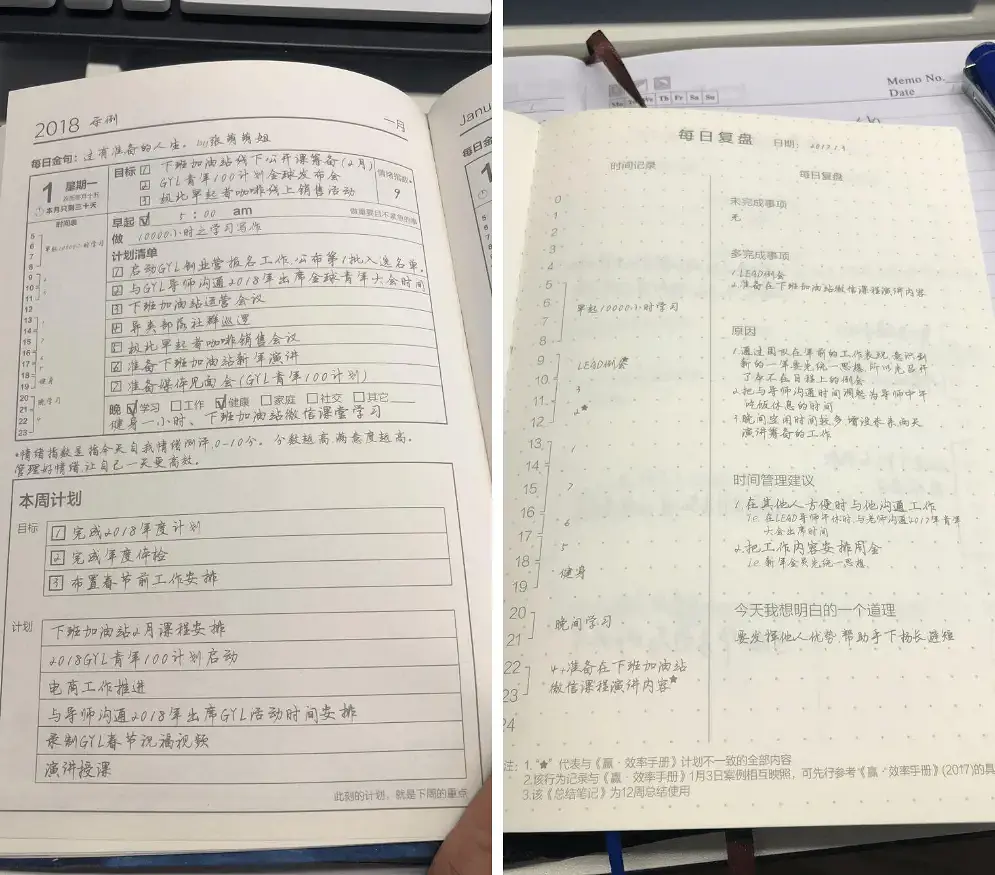 2018 示例
一月
每日金句：过有准备的人生。by张萌萌姐
1 星期一
本月只剩三十天
时间表
目标 1 下班加油站线下公开课筹备(2月)
2 GYL青年100计划全球发布会
3 极北早起者咖啡线上销售活动
情绪指数*
9
早起 5：00 am
做重要且不紧急的事
做 10000小时之学习写作
计划清单
1 启动GYL创业营报名工作,公布第1批入选名单。
2 与GYL导师沟通2018年出席全球青年大会时间
3 下班加油站运营会议
4 导类部落社群巡逻
5 极北早起者咖啡销售会议
6 准备下班加油站新年演讲
7 准备媒体见面会(GYL青年100计划)
晚 学习 工作 健康 家庭 社交 其它
健身一小时、下班加油站微信课堂学习
5
6
7
8
9
10
11
12
13
14
15
16
17
18
19
20
21
22
23
早起10000小时学习
健身
晚学习
*情绪指数是指今天自我情绪测评,0-10分。分数越高,满意度越高。
管理好情绪,让自己一天更高效。
本周计划
目标
1 完成2018年度计划
2 完成年度体检
3 布置春节前工作安排
计划
下班加油站2月课程安排
2018GYL青年100计划启动
电商工作推进
与导师沟通2018年出席GYL活动时间安排
录制GYL春节祝福视频
演讲授课
此刻的计划，就是下周的重点
Janu
每日金
1
Memo No.
Date
Th Fr Sa Su
每日复盘 日期：2017.1.3
时间记录
0
1
2
3
4
5
6
7
8
9
10
11
12
13
14
15
16
17
18
19
20
21
22
23
24
早起10000小时学习
LEAD例会
3
2★
1
7
6
5
健身
晚间学习
4+准备在下班加油站
微信课程演讲内容★
每日复盘
未完成事项
无
多完成事项
1.LEAD例会
2.准备在下班加油站微信课程演讲内容
原因
1.通过团队在年前的工作表现,意识到
新的一年要先统一思想,所以先召开
了本不在日程上的例会
2.把与导师沟通时间调整为导师中午
吃饭休息的时间
3.晚间空闲时间较多,增设未来两天
演讲筹备的工作
时间管理建议
1.在其他人方便时与他沟通工作
i.e. 在LEAD导师午休时,与老师沟通2017年青年
大会出席时间
2.把工作内容安排周会
i.e. 新年会员先统一思想。
今天我想明白的一个道理
要发挥他人优势,帮助手下扬长避短
注：1.“★”代表与《赢·效率手册》计划不一致的全部内容
2.该行为记录与《赢·效率手册》1月3日案例相互映照，可先行参考《赢·效率手册》(2017)的具
3.该《总结笔记》为12周总结使用